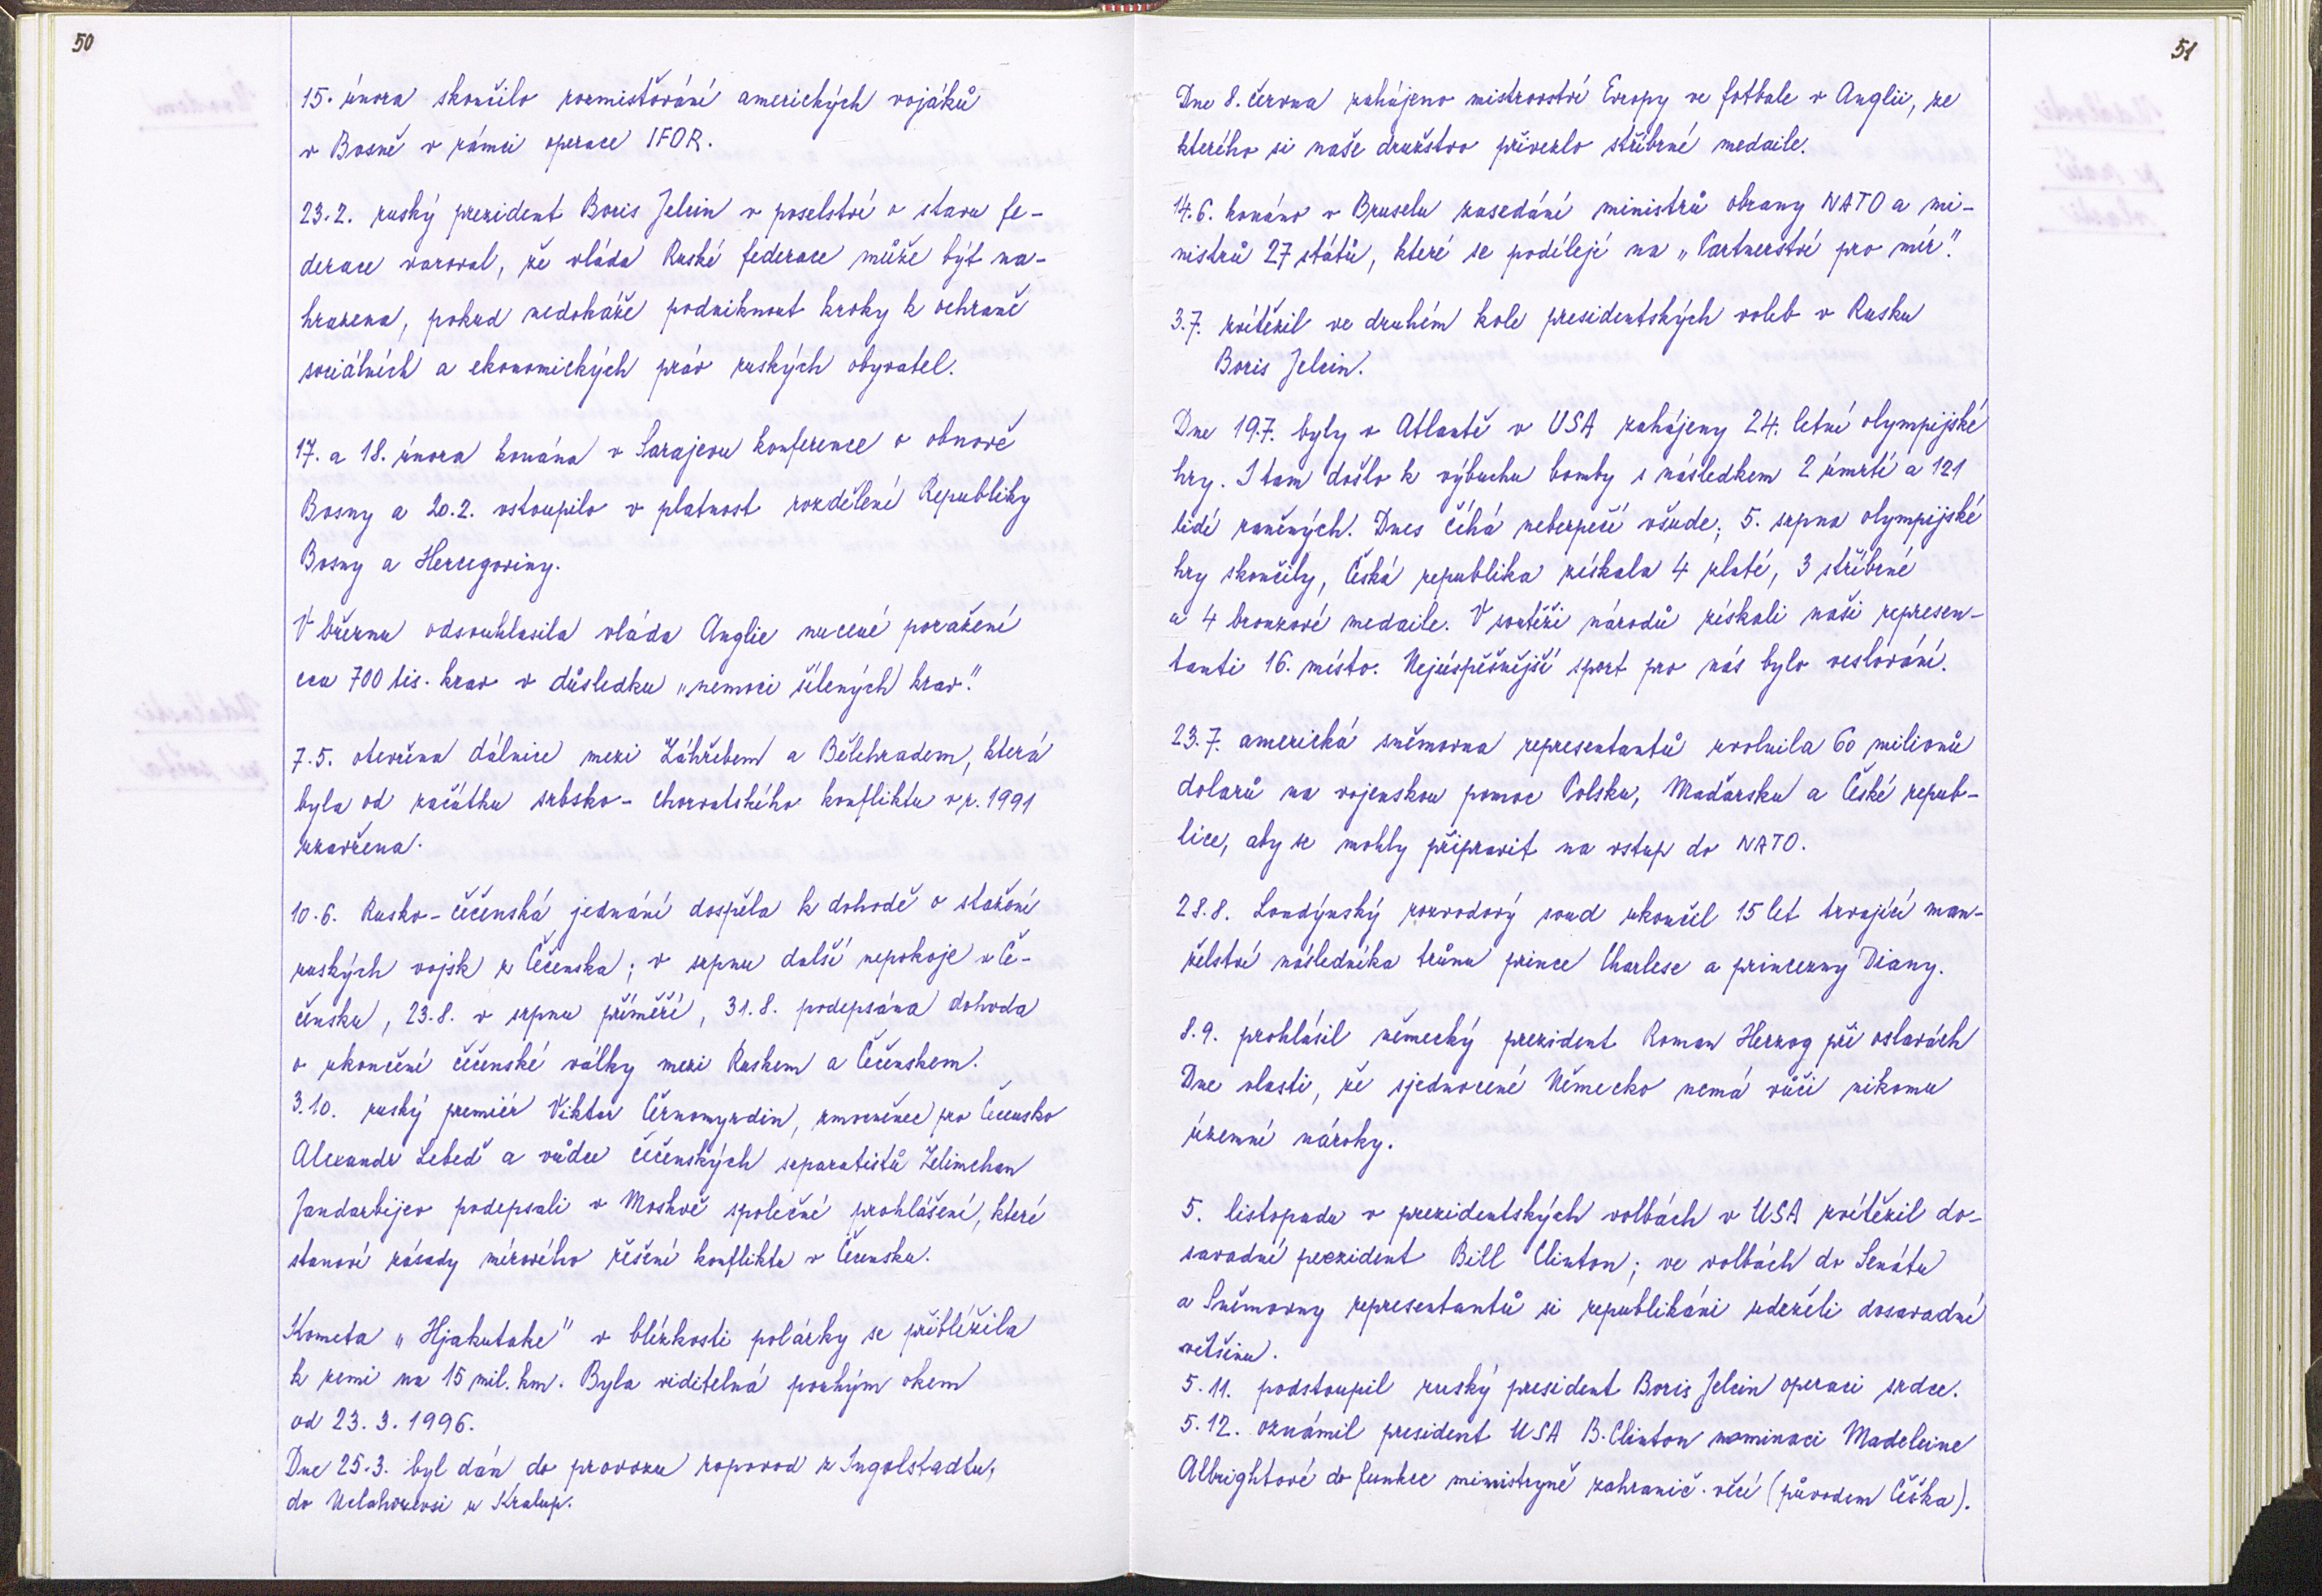 50
15. února skončilo rozmisťování amerických vojáků
v Bosně v rámci operace IFOR.
23.2. ruský prezident Boris Jelcin v poselství o stavu fe-
derace varoval, že vláda Ruské federace může být na-
hrazena, pokud nedokáže podniknout kroky k ochraně
sociálních a ekonomických práv ruských obyvatel.
17. a 18. února konána v Sarajevu konference o obnově
Bosny a 20.2. vstoupilo v platnost rozdělení Republiky
Bosny a Hercegoviny.
V březnu odsouhlasila vláda Anglie nucené poražení
cca 700 tis. krav v důsledku „nemoci šílených krav."
7.5. otevřena dálnice mezi Záhřebem a Bělehradem, která
byla od začátku srbsko-chorvatského konfliktu v r. 1991
uzavřena.
10.6. Rusko-čečenská jednání dospěla k dohodě o stažení
ruských vojsk z Čečenska; v srpnu další nepokoje v Če-
čensku, 23.8. v srpnu příměří, 31.8. podepsána dohoda
o ukončení čečenské války mezi Ruskem a Čečenskem.
3.10. ruský premiér Viktor Černomyrdin, zmocněnec pro Čečensko
Alexandr Lebeď a vůdce čečenských separatistů Zelimchan
Jandarbijev podepsali v Moskvě společné prohlášení, které
stanoví zásady mírového řešení konfliktu v Čečensku.
Kometa „Hjakutake" v blízkosti polárky se přiblížila
k zemi na 15 mil. km. Byla viditelná pouhým okem
od 23. 3. 1996.
Dne 25.3. byl dán do provozu ropovod z Ingolstadtu,
do Nelahozevsi u Kralup.
51
Dne 8. června zahájeno mistrovství Evropy ve fotbale v Anglii, ze
kterého si naše družstvo přivezlo stříbrné medaile.
14.6. konáno v Bruselu zasedání ministrů obrany NATO a mi-
nistrů 27 států, které se podílejí na „Partnerství pro mír."
3.7. zvítězil ve druhém kole presidentských voleb v Rusku
Boris Jelcin.
Dne 19.7. byly v Atlantě v USA zahájeny 24. letní olympijské
hry. I tam došlo k výbuchu bomby s následkem 2 úmrtí a 121
lidí raněných. Dnes číhá nebezpečí všude; 5. srpna olympijské
hry skončily, Česká republika získala 4 zlaté, 3 stříbrné
a 4 bronzové medaile. V soutěži národů získali naši represen-
tanti 16. místo. Nejúspěšnější sport pro nás bylo veslování.
23.7. americká sněmovna representantů uvolnila 60 milionů
dolarů na vojenskou pomoc Polsku, Maďarsku a České repub-
lice, aby se mohly připravit na vstup do NATO.
28.8. Londýnský rozvodový soud ukončil 15 let trvající man-
želství následníka trůnu prince Charlese a princezny Diany.
8.9. prohlásil německý prezident Roman Herzog při oslavách
Dne vlasti, že sjednocené Německo nemá vůči nikomu
územní nároky.
5. listopadu v prezidentských volbách v USA zvítězil do-
savadní prezident Bill Clinton; ve volbách do Senátu
a Sněmovny representantů si republikáni udrželi dosavadní
většinu.
5.11. podstoupil ruský president Boris Jelcin operaci srdce.
5.12. oznámil president USA B. Clinton nominaci Madeleine
Albrightové do funkce ministryně zahranič. věcí (původem Češka).